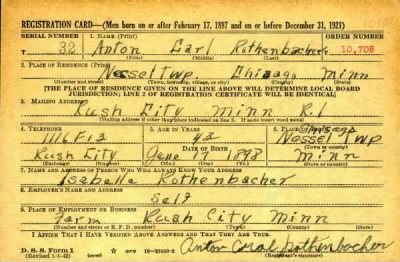 REGISTRATION CARD—(Men born on or after February 17, 1897 and on or before December 31, 1921)
SERIAL NUMBER 1. NAME (Print) ORDER NUMBER
T 32 Anton Carl Rothenbacher 10,708
(First) (Middle) (Last)
2. PLACE OF RESIDENCE (Print)
Nessel Twp Chisago Minn
(Number and street) (Town, township, village, or city) (County) (State)
[THE PLACE OF RESIDENCE GIVEN ON THE LINE ABOVE WILL DETERMINE LOCAL BOARD
JURISDICTION; LINE 2 OF REGISTRATION CERTIFICATE WILL BE IDENTICAL]
3. MAILING ADDRESS
Rush City Minn R.1
[Mailing address if other than place indicated on line 2. If same insert word same]
4. TELEPHONE 5. AGE IN YEARS 6. PLACE OF BIRTH
1116F13 43 Nessel Twp
DATE OF BIRTH (Town or county)
Rush City June 1898 Minn
(Exchange) (Number) (Mo.) (Day) (Yr.) (State or country)
7. NAME AND ADDRESS OF PERSON WHO WILL ALWAYS KNOW YOUR ADDRESS
Isabella Rothenbacher
8. EMPLOYER'S NAME AND ADDRESS
Self
9. PLACE OF EMPLOYMENT OR BUSINESS
Farm Rush City Minn
(Number and street or R. F. D. number) (Town) (County) (State)
I AFFIRM THAT I HAVE VERIFIED ABOVE ANSWERS AND THAT THEY ARE TRUE.
D. S. S. Form 1
(Revised 1-1-42) (over) Anton Carl Rothenbacher